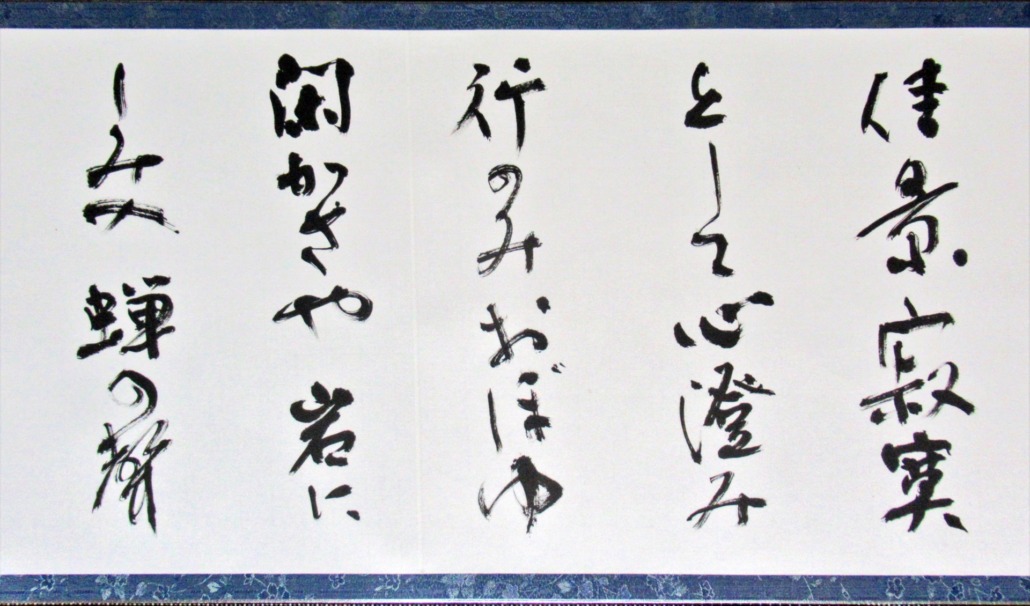 佳景寂寞
として心澄み
行のみおぼゆ
閑かさや 岩に
しみ入 蝉の聲